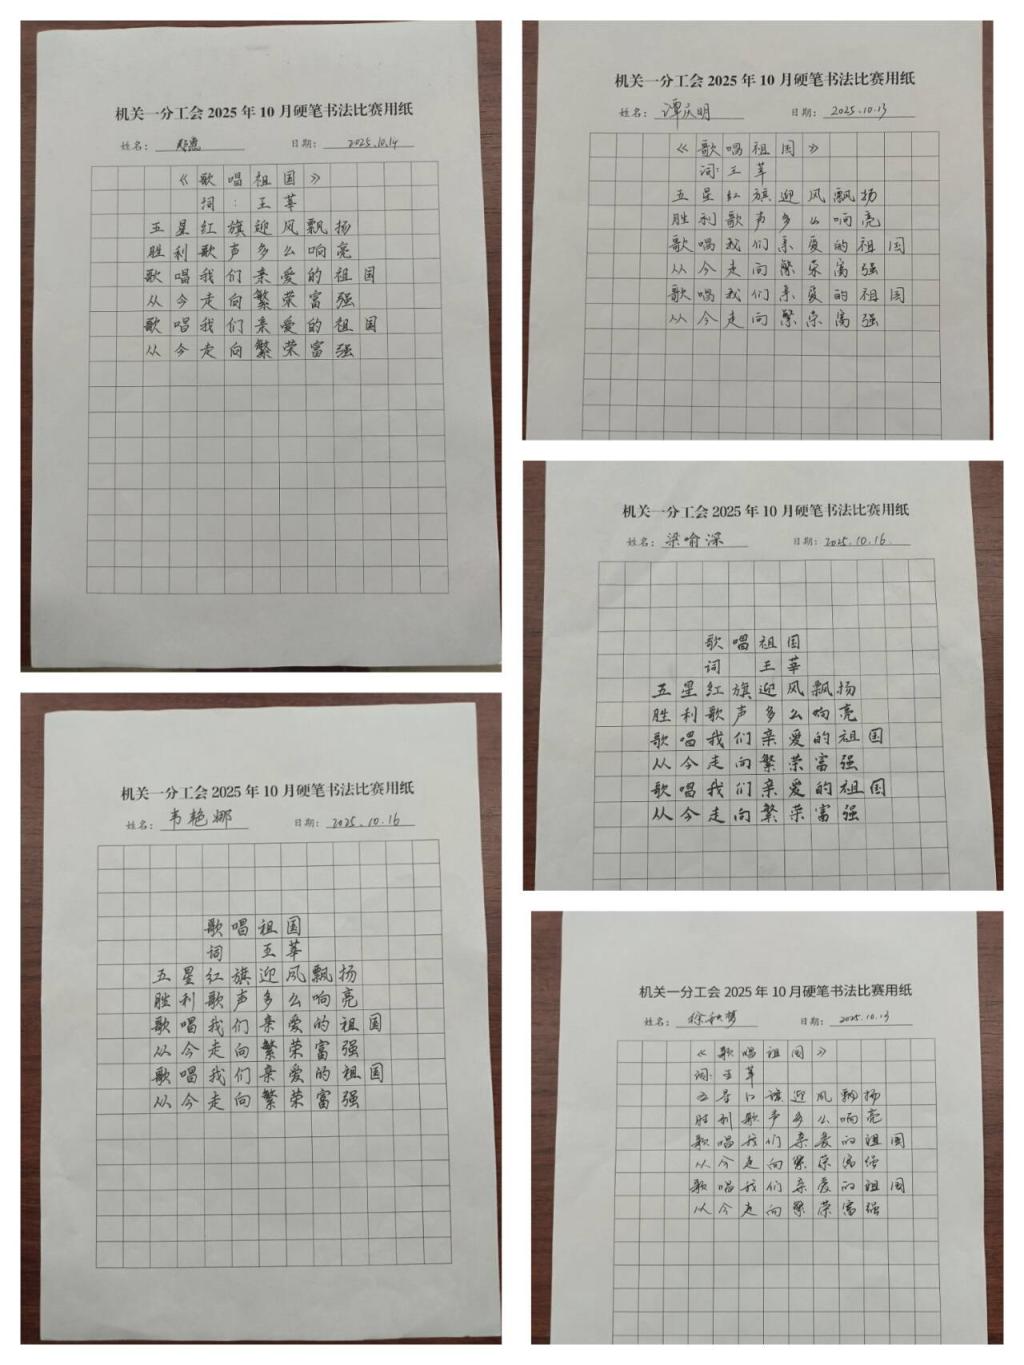 机关一分工会 2025 年 10 月硬笔书法比赛用纸
姓名： 日期： 2025.10.14
《歌唱祖国》
词：王莘
五星红旗迎风飘扬
胜利歌声多么响亮
歌唱我们亲爱的祖国
从今走向繁荣富强
歌唱我们亲爱的祖国
从今走向繁荣富强
机关一分工会 2025 年 10 月硬笔书法比赛用纸
姓名： 谭庆明 日期： 2025.10.13
《歌唱祖国》
词：王莘
五星红旗迎风飘扬
胜利歌声多么响亮
歌唱我们亲爱的祖国
从今走向繁荣富强
歌唱我们亲爱的祖国
从今走向繁荣富强
机关一分工会 2025 年 10 月硬笔书法比赛用纸
姓名： 梁喻深 日期： 2025.10.16.
歌唱祖国
词 王莘
五星红旗迎风飘扬
胜利歌声多么响亮
歌唱我们亲爱的祖国
从今走向繁荣富强
歌唱我们亲爱的祖国
从今走向繁荣富强
机关一分工会 2025 年 10 月硬笔书法比赛用纸
姓名： 韦艳娜 日期： 2025.10.16
歌唱祖国
词 王莘
五星红旗迎风飘扬
胜利歌声多么响亮
歌唱我们亲爱的祖国
从今走向繁荣富强
歌唱我们亲爱的祖国
从今走向繁荣富强
机关一分工会 2025 年 10 月硬笔书法比赛用纸
姓名： 徐秋梦 日期： 2025.10.13
《歌唱祖国》
词：王莘
五星红旗迎风飘扬
胜利歌声多么响亮
歌唱我们亲爱的祖国
从今走向繁荣富强
歌唱我们亲爱的祖国
从今走向繁荣富强